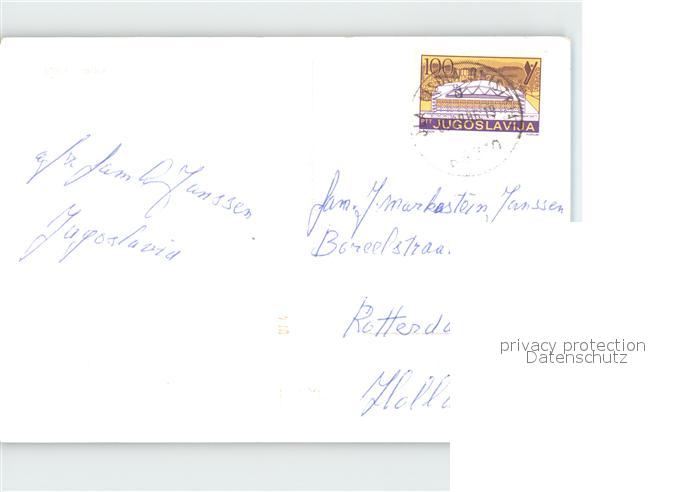 100
PTT JUGOSLAVIJA
Janssen
Jugoslavia
Fam. J. Markestein Janssen
Boreelstraa
Rotterda
Holla
privacy protection
Datenschutz